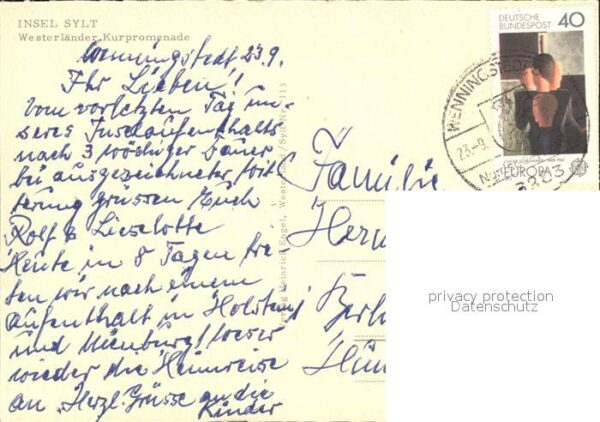 INSEL SYLT
Westerländer Kurpromenade
Wenningstedt 23.9.
Ihr Lieben!
Vom vorletzten Tag un-
seres Inselaufenthalts
nach 3 wöchiger Dauer
bei ausgezeichneter Wit-
terung grüssen Euch
Rolf & Lieselotte
Heute in 8 Tagen tre-
ten wir nach einem
Aufenthalt in Holstein
und Nienburg/Weser
wieder die Heimreise
an. Herzl. Grüsse an die
Kinder
Verlag Heinrich Engel, Westerland/Sylt Nr. 113
Familie
Herm
Berl
Hün
DEUTSCHE
BUNDESPOST
40
EUROPA
WENNINGSTEDT
23.-9.
privacy protection
Datenschutz